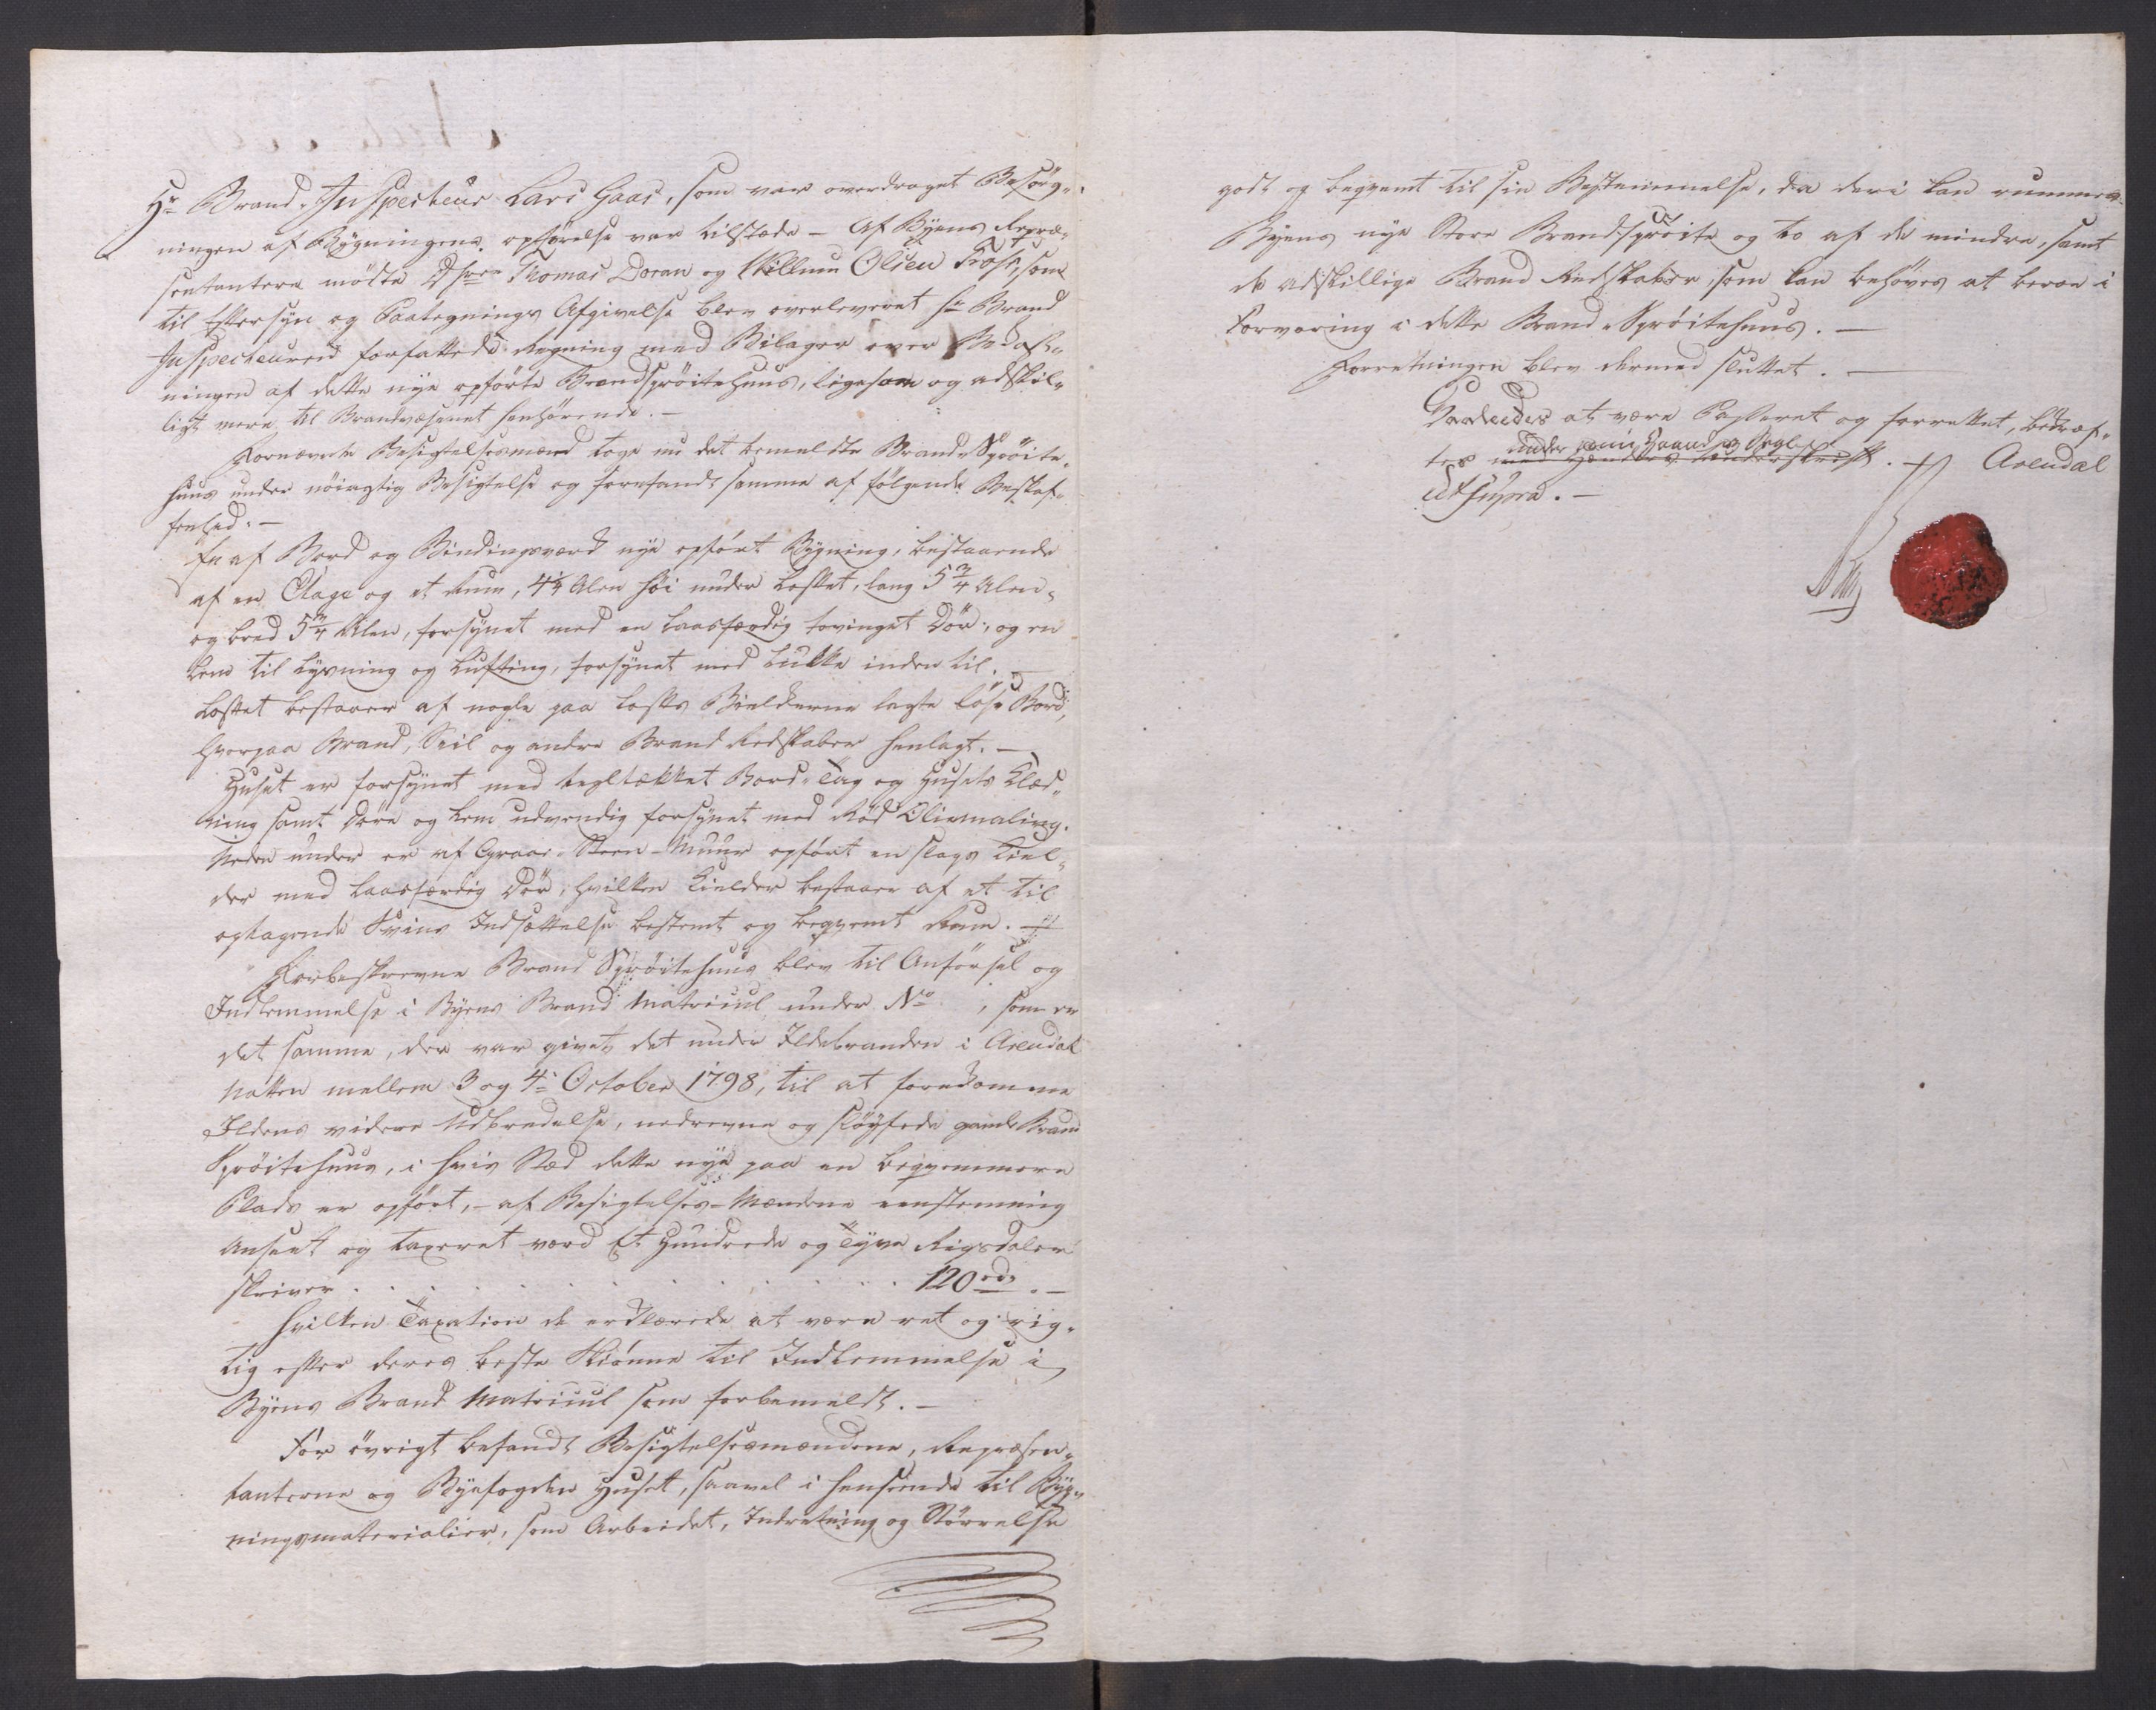 Hr Brand-Inspecteur Lars Gaas, som var overdraget Besørg-
ningen af Bygningens opførelse var tilstæde – Af Byens Repræ-
sentantere mødte Dhrr Thomas Doran og Willum Olsen, som
til Eftersyn og Paategnings Afgivelse blev overleveret Hr Brand
Inspecteurens forfattede Regning med Bilager over
ningen af dette nye opførte Brandsprøitehuus, ligesom og adskil-
ligt mere til Brandvæsenet henhørende. –
Fornævnte Besigtelsesmænd toge nu det bemeldte Brand-Sprøite-
huus under nøiagtig Besigtelse og forefandt samme af følgende Beskaf-
fenhed. –
En af Bord og Bindingsværk nye opført Bygning, bestaaende
af en Etage og et Rum, 4¼ Alen høi under Loftet, lang 5¾ Alen,
og bred 5¾ Alen, forsynet med en laasfærdig tovinget Dør, og en
Lem til Lysning og Lufting, forsynet med Lukke inden til. –
Loftet bestaaer af nogle paa Lofts Bielkerne lagte løse Bord,
hvorpaa Brand, Seil og andre Brand Redskaber henlagt. –
Huset er forsynet med tegltækket Bord-Tag og Husets Klæd-
ning samt Døre og Lem udvendig forsynet med Rød Oliemaling.
Neden under er af Graae-Steen-Muur opført en slags Kiel-
der med laasfærdig Dør, hvilken Kielder bestaaer af et til
optagende Sviins Indsættelse bestemt og beqvemt Rum. –
Forbeskrevne Brand Sprøitehuus blev til Anførsel og
Indlemmelse i Byens Brand Matricul under No , som er
det samme, der var givet det under Ildebranden i Arendal
Natten mellem 3 og 4de October 1798, til at forekomme
Ildens videre Udbredelse, nedrevne og sløyfede gamle Brand
Sprøitehuus, i hvis Stæd dette nye paa en beqvemmere
Plads er opført, – af Besigtelses-Mændene eenstemmig
Anseet og taxeret værd Et Hundrede og Tyve Rigsdaler
skriver . . . . . . . . . . . . 120 rd. –
Hvilken Taxation de erklærede at være ret og rig-
tig efter deres beste Skiønne til Indlemmelse i
Byens Brand Matricul som forbemeldt. –
For øvrigt befandt Besigtelsesmændene, Repræsen-
tanterne og Byefogden Huset, saavel i henseende til Byg-
ningsmaterialier, som Arbeidet, Indretning og Størrelse
godt og beqvemt til sin Bestemmelse, da deri kan rummes
Byens nye Store Brandsprøite og to af de mindre, samt
de adskillige Brand Redskaber, som kan behøves at være i
Forvaring i dette Brand-Sprøitehuus. –
Forretningen blev dermed sluttet. –
Saaledes at være Passeret og forrettet, bekræf-
under min Haand og Segl
tes med Hænders Underskrift. – Arendal
ut supra. –